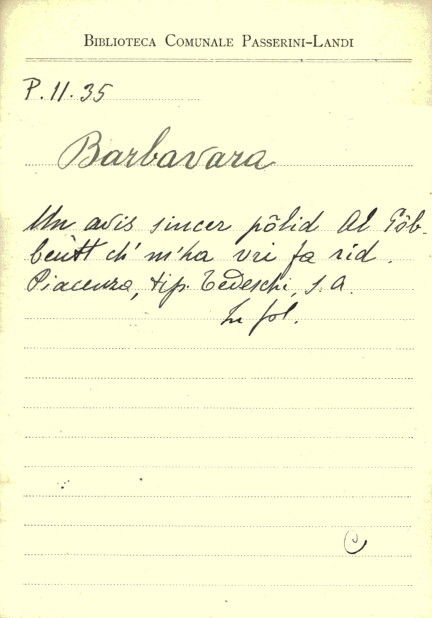 BIBLIOTECA COMUNALE PASSERINI-LANDI
P. 11. 35
Barbavara
Un avis sincer pōlid Al Gōb-
beìtt ch' m'ha vrì fa rid.
Piacenza, tip. Tedeschi, s. a.
In fol.
C